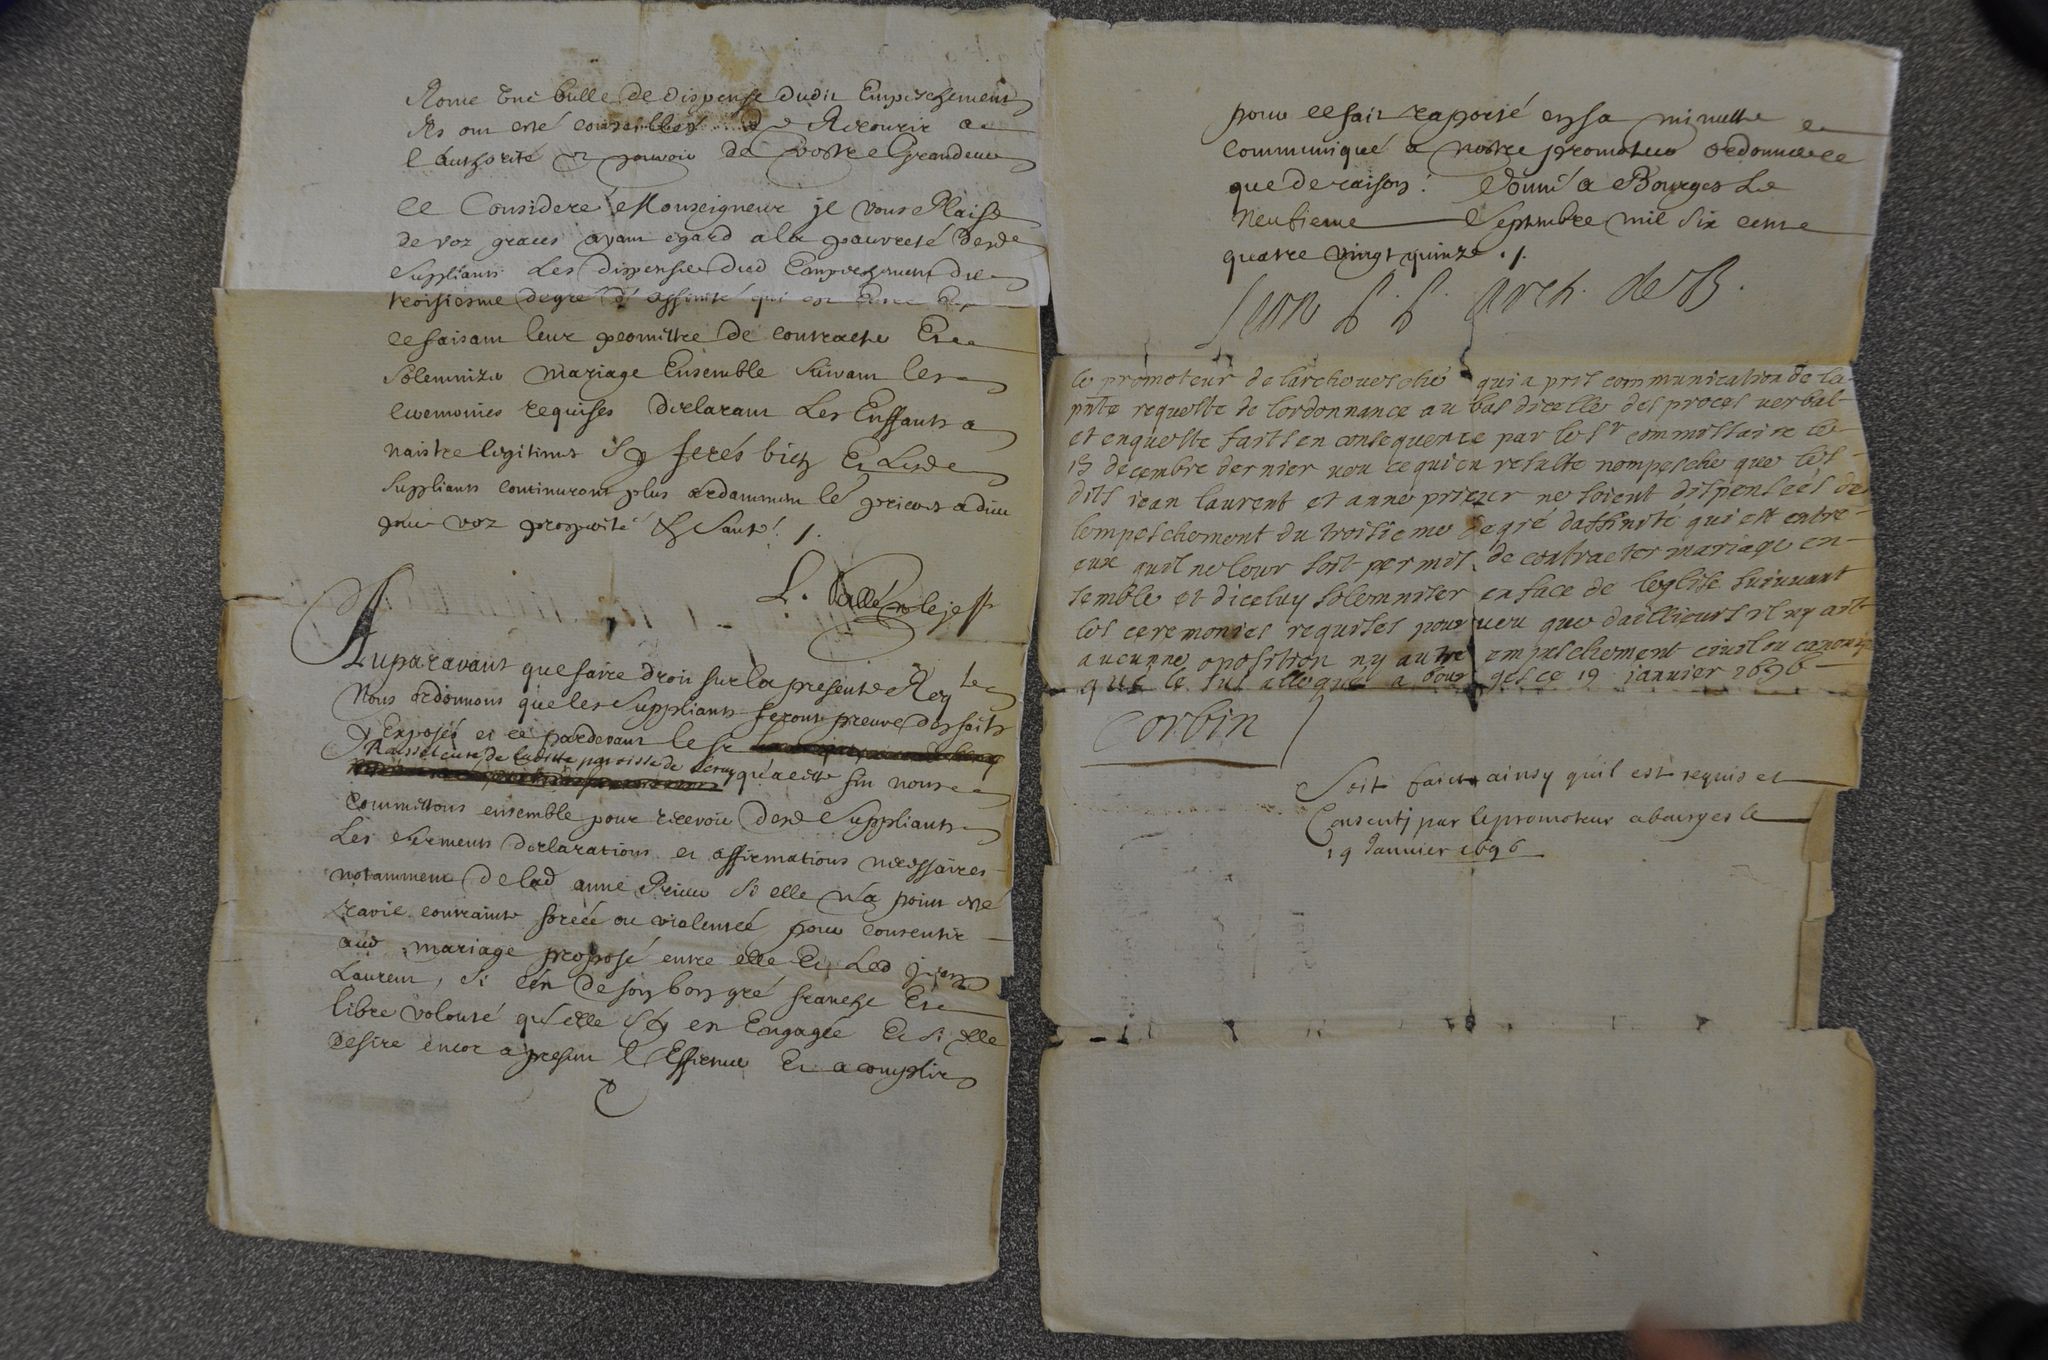 Rome une bulle de dispense dudit Empeschement
Ils ont esté conseillés de Recourir a
l'authorité et pouvoir de vostre Grandeur
Ce Consideré Monseigneur il vous Plaise
de voz graces ayant egard a la pauvreté desd
suppliants Les dispenser dud Empeschement du
troisiesme degré d'affinité qui est Entre Eux
ce faisant leur permettre de contracter Et
solemnizer mariage Ensemble suivant les
ceremonies requises declarant Les Enffants a
naistre legitimes Sy ferés bien Et Lesd
suppliants continuront plus ardamment le prieres a dieu
pour voz prosperité & santé ./.
Auparavant que faire droit sur la presente Reqte
Nous ordonnons que les Suppliants feront preuve des faits
Exposés et ce pardevant le sr
de laditte parroisse de qu'a cette fin nous
Commettons ensemble pour recevoir desd Suppliants
Les serments declarations et affirmations necessaires
notamment de lad anne Prieur Si elle n'a point esté
ravie contrainte forcée ou violentée pour consentir
aud mariage proposé entre elle Et Led jean
Laurent, si c'en de son bon gré franche Et
libre volonté qu'elle s'y en Engagée Et si elle
desire encor a present l'Effectuer Et acomplir
pour ce fait raporté en sa minutte et
communiqué a nostre promoteur ordonner ce
que de raison. Donné a Bourges Le
Neufieme Septembre mil six cent
quatre vingt quinze ./.
Jean P. P. arch. de B.
le promoteur de larchevesché qui a pris communication de la
pnte requeste de lordonnance au bas dicelle des proces verbal
et enqueste faits en consequence par le sr commissaire le
15 decembre dernier veu ce qui en resulte nempesche que les
dits jean laurent et anne prieur ne soient dispensées de
lempeschement du troisieme degré daffinité qui est entre
eux quil ne leur soit permis de contracter mariage en
semble et diceluy solemniser en face de leglise suivant
les ceremonies requises pourveu que dailleurs il ny ait
aucune oposition ny autre empeschement civil ou canonique
a bourges ce 19 janvier 1696
Corbin
Soit faict ainsy qu'il est requis et
Consenty par le promoteur a bourges le
19 Janvier 1696